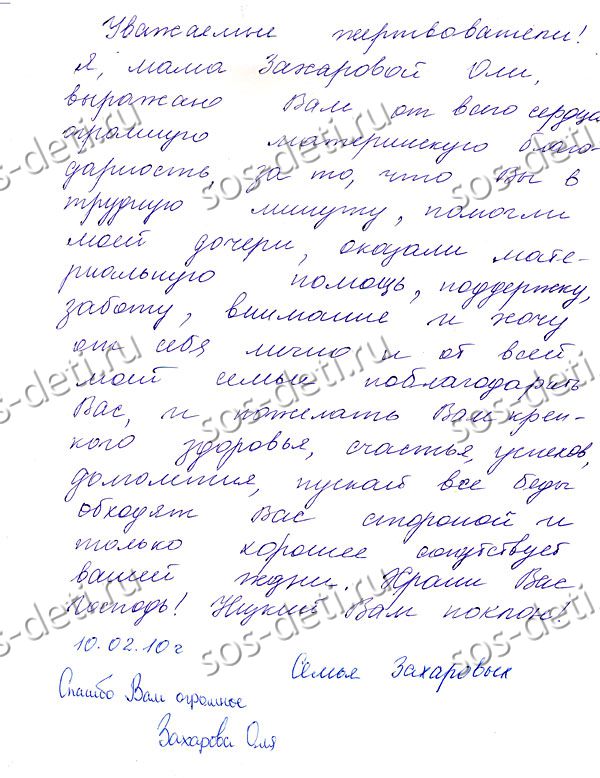 Уважаемые жертвователи!
Я, мама Захаровой Оли,
выражаю Вам от всего сердца
огромную материнскую благо-
дарность, за то, что Вы в
трудную минуту, помогли
моей дочери, оказали мате-
риальную помощь, поддержку,
заботу, внимание и хочу
от себя лично и от всей
моей семьи поблагодарить
Вас, и пожелать Вам креп-
кого здоровья, счастья, успехов,
долголетия, пускай все беды
обходят Вас стороной и
только хорошее сопутствует
вашей жизни. Храни Вас
Господь! Низкий Вам поклон!
10.02.10 г
Семья Захаровых
Спасибо Вам огромное
Захарова Оля
sos-deti.ru